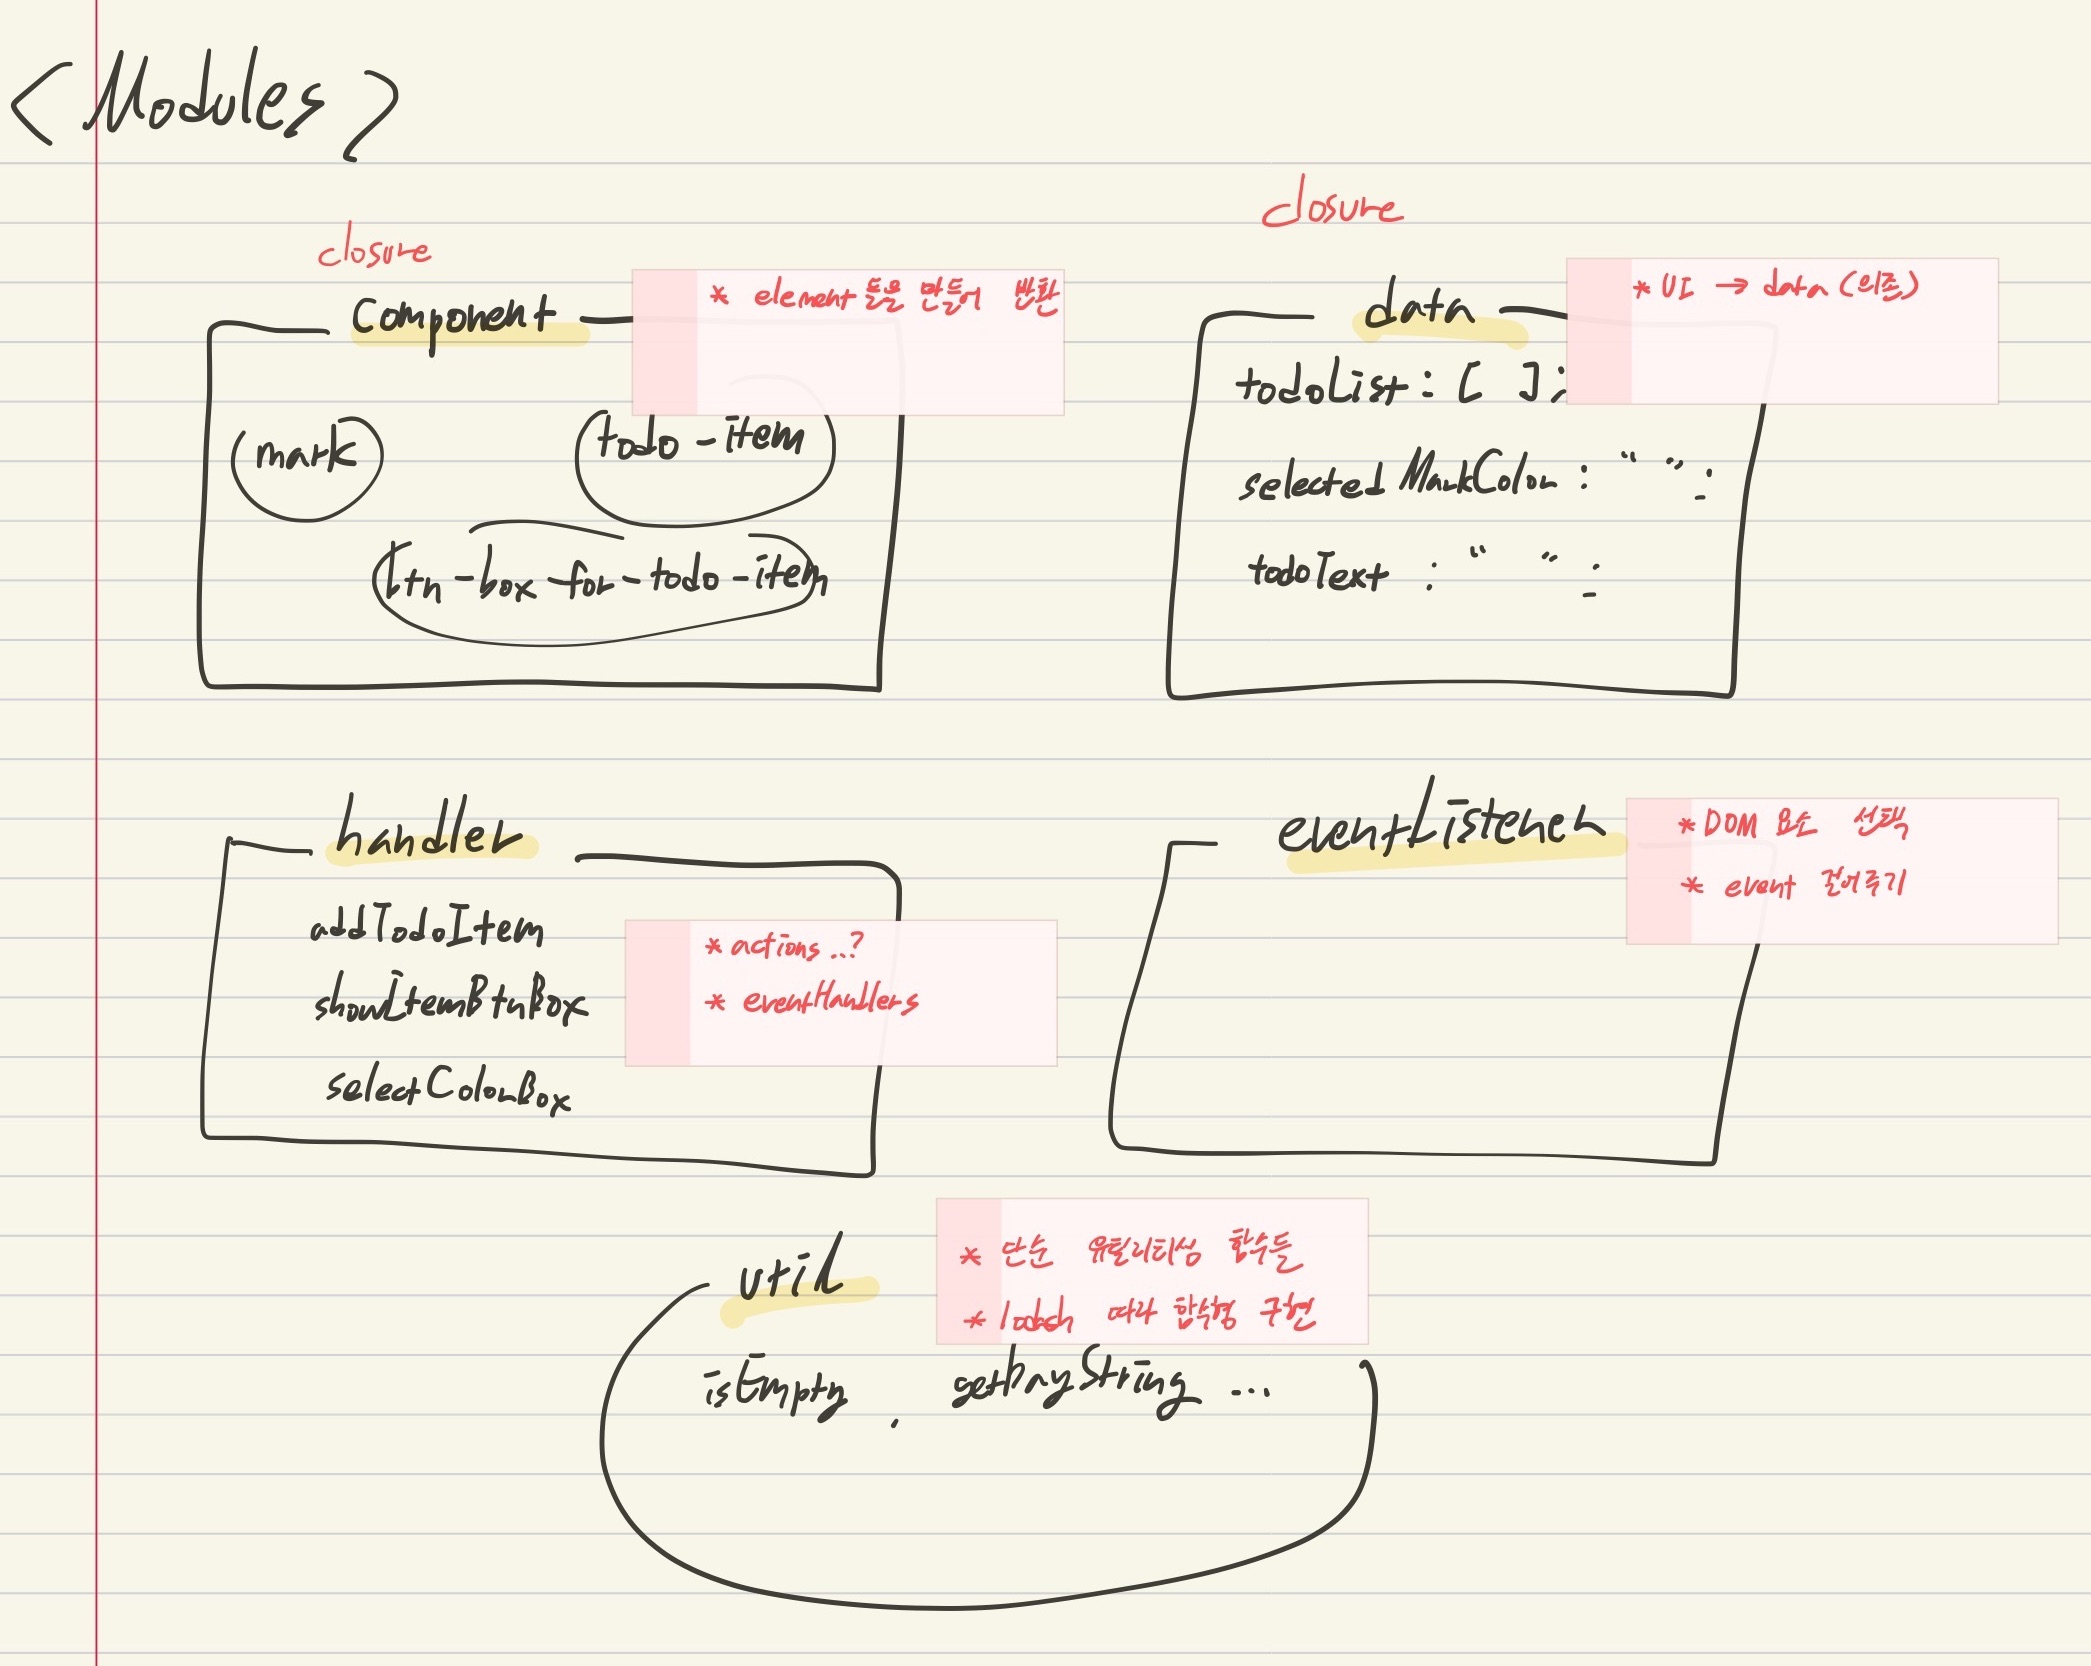 <Modules>
closure
component
* element들을 만들어 반환
mark
todo-item
btn-box-for-todo-item
closure
data
* UI → data (의존)
todoList : [ ];
selectedMarkColor : " ";
todoText : " ";
handler
addTodoItem
showItemBtnBox
selectColorBox
* actions ...?
* eventHandlers
eventListener
* DOM 요소 선택
* event 걸어주기
util
* 단순 유틸리티성 함수들
* lodash 따라 함수형 구현
isEmpty, getDayString ...